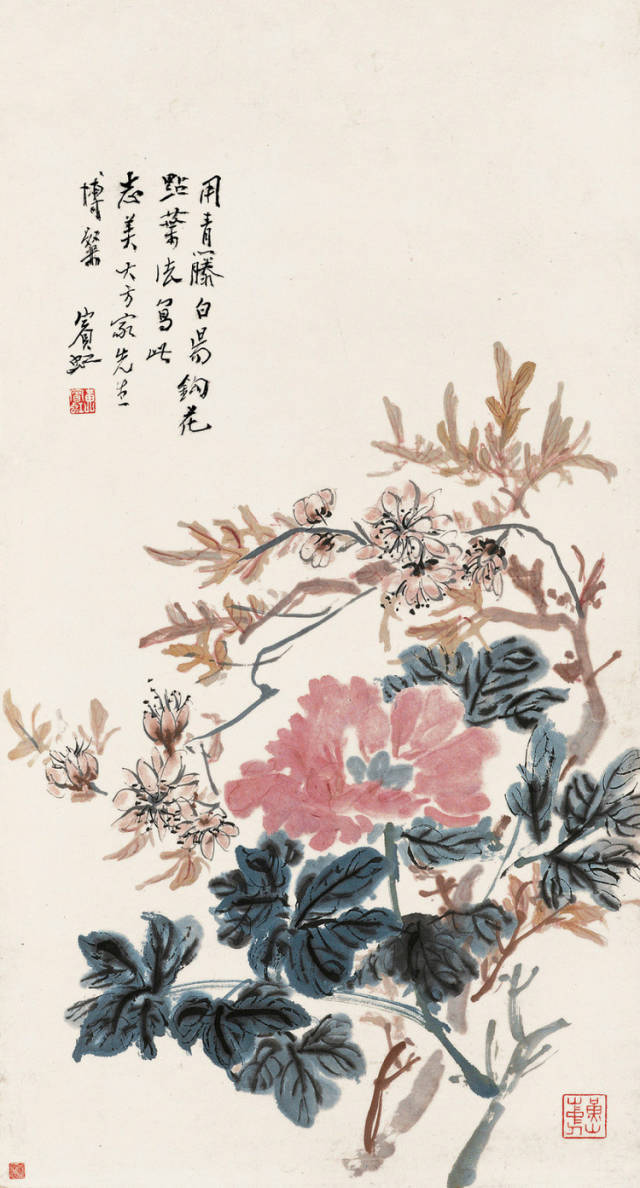 用青藤白昜鈎花
點葉法寫此
志美大方家先生
博粲 賓虹